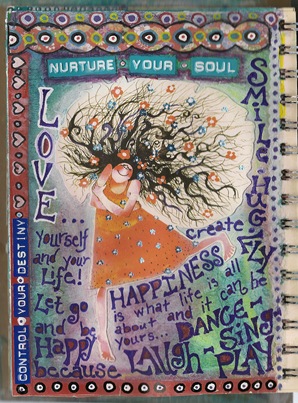 NURTURE YOUR SOUL
LOVE...
Yourself
and your
Life!
Let go
and be
Happy
because
HAPPINESS
is what life is all
about and it can be
yours...
create
SMILE HUG
FLY
DANCE-
SING-
LAUGH-PLAY
CONTROL YOUR DESTINY